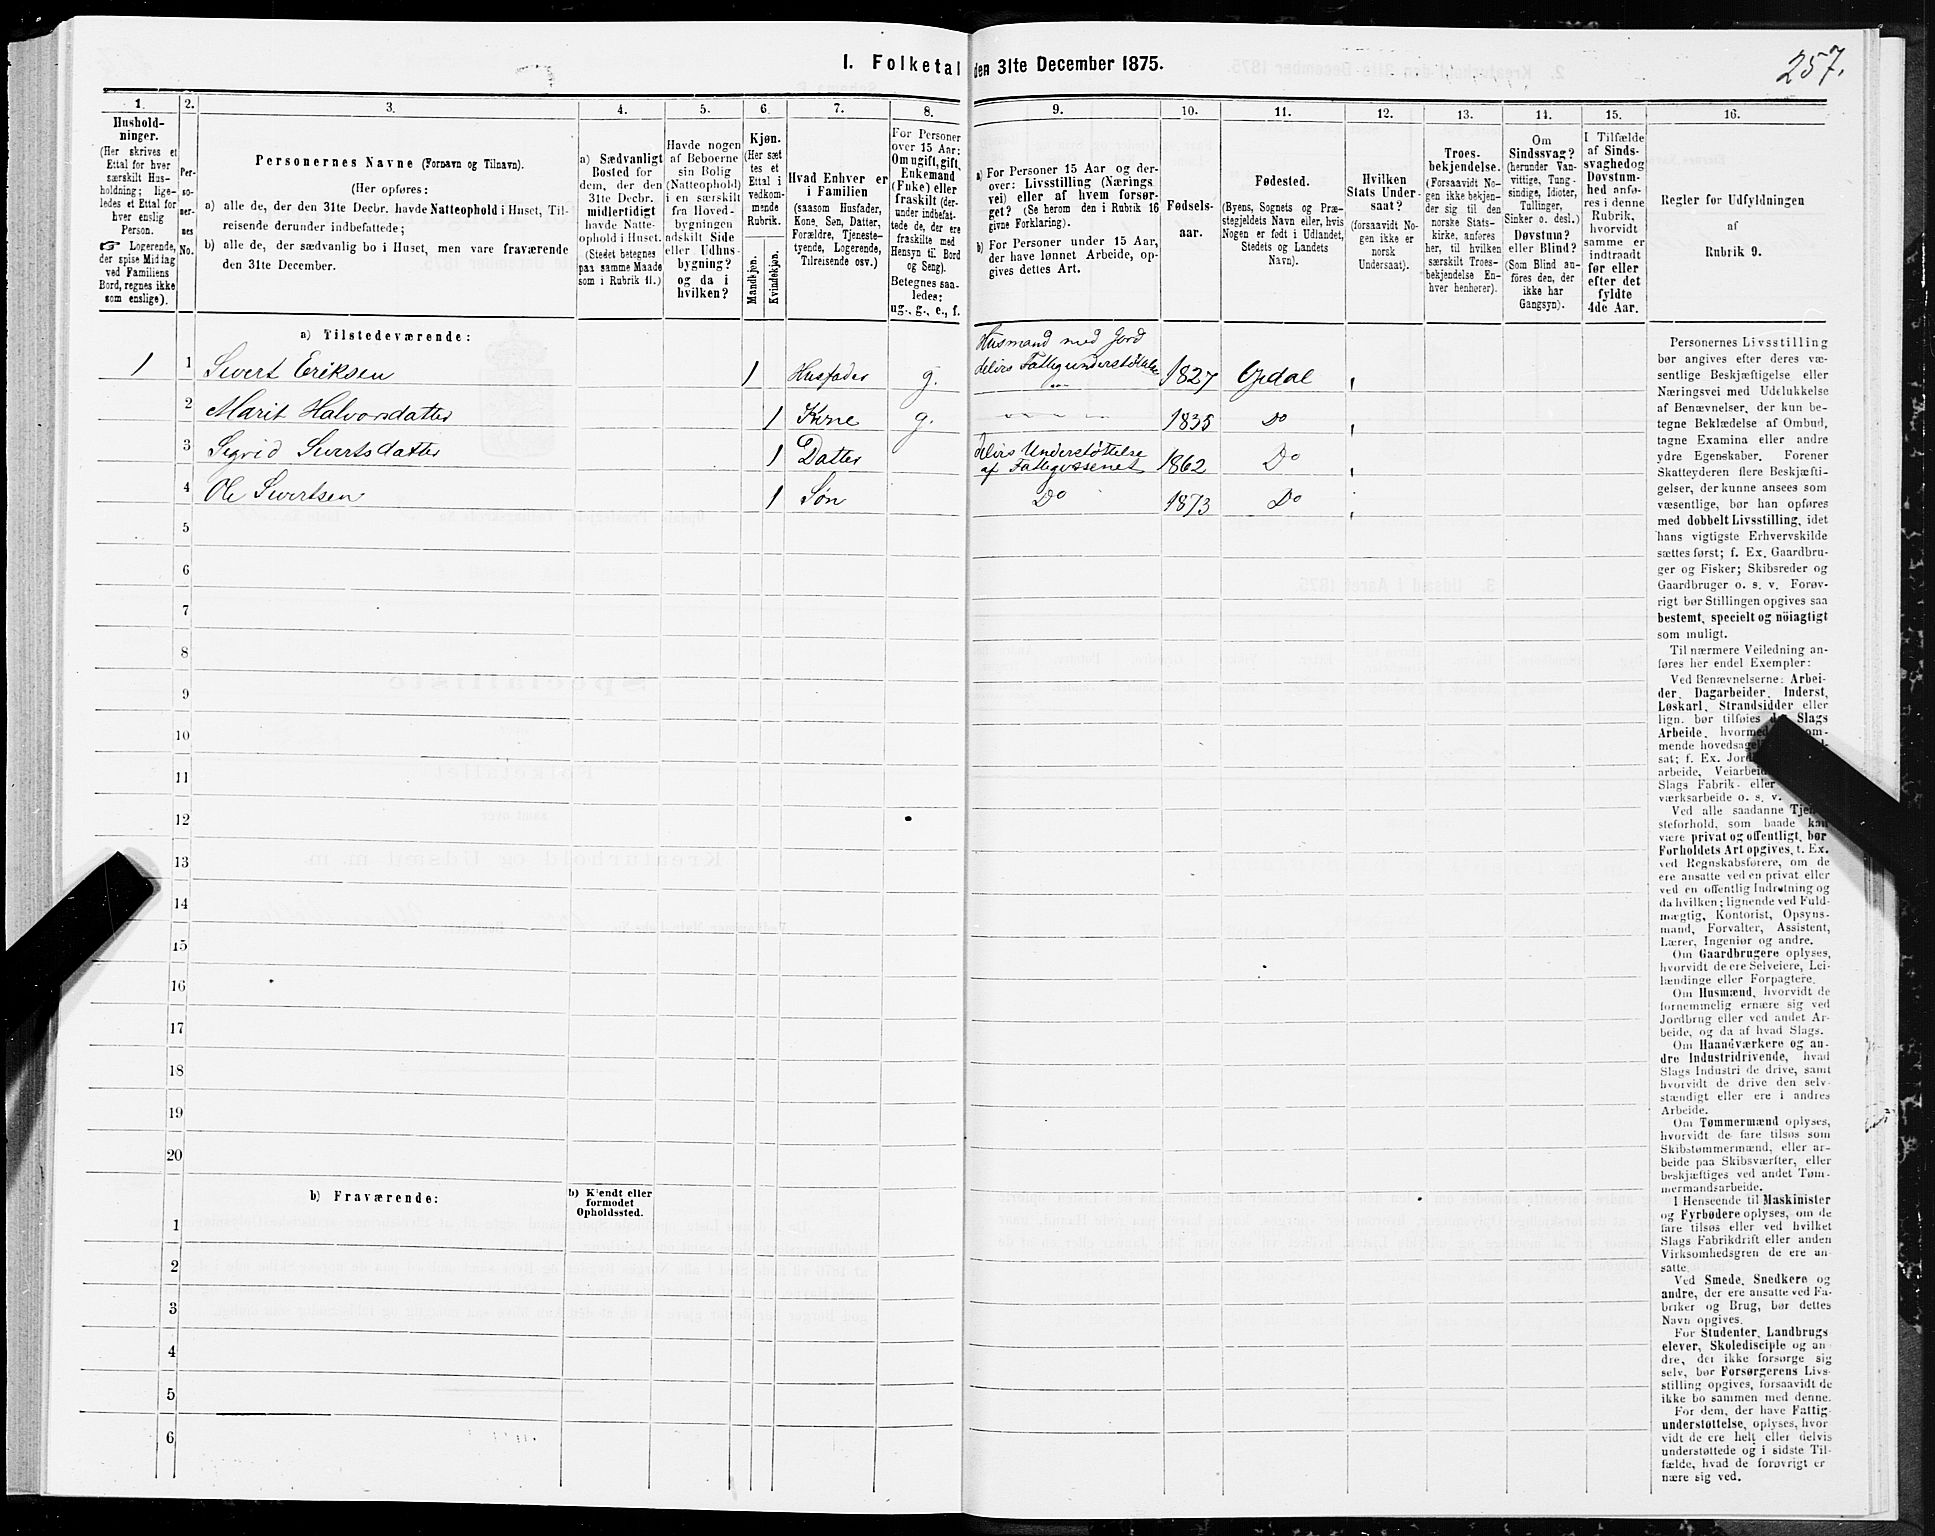 257.
I. Folketal den 31te December 1875.
1. 2. 3. 4. 5. 6. 7. 8. 9. 10. 11. 12. 13. 14. 15. 16.
Hushold-
ninger.
(Her skrives et
Ettal for hver
særskilt Hus-
holdning; lige-
ledes et Ettal for
hver enslig
Person.
☞ Logerende,
der spise Middag
ved Familiens
Bord, regnes ikke
som enslige).
Per-
so-
ner-
nes
No.
Personernes Navne (Fornavn og Tilnavn).
(Her opføres:
a) alle de, der den 31te Decbr. havde Natteophold i Huset, Til-
reisende derunder indbefattede;
b) alle de, der sædvanlig bo i Huset, men vare fraværende
den 31te December.
a) Sædvanligt
Bosted for
dem, der den
31te Decbr.
midlertidigt
havde Natte-
ophold i Huset.
(Stedet betegnes
paa samme Maade
som i Rubrik 11.)
Havde nogen
af Beboerne
sin Bolig
(Natteophold)
i en særskilt
fra Hoved-
bygningen
adskilt Side
eller Udhus-
bygning?
og da i
hvilken?
Kjøn.
(Her sæt-
tes et
Ettal i
vedkom-
mende
Rubrik.
Mandkjøn.
Kvindekjøn.
Hvad Enhver er
i Familien
(saasom Husfader,
Kone, Søn, Datter,
Forældre, Tjeneste-
tyende, Logerende,
Tilreisende osv.)
For Personer
over 15 Aar:
Om ugift, gift,
Enkemand
(Enke) eller
fraskilt (der-
under indbefat-
tede de, der ere
fraskilte med
Hensyn til Bord
og Seng).
Betegnes saa-
ledes:
ug., g., e., f.
a) For Personer 15 Aar og der-
over: Livsstilling (Nærings-
vei) eller af hvem forsør-
get? (Se herom den i Rubrik 16
givne Forklaring).
b) For Personer under 15 Aar,
der have lønnet Arbeide, op-
gives dettes Art.
Fødsels-
aar.
Fødested.
(Byens, Sognets og Præ-
stegjeldets Navn eller, hvis
Nogen er født i Udlandet,
Stedets og Landets
Navn).
Hvilken
Stats Under-
saat?
(forsaavidt No-
gen ikke er
norsk
Undersaat).
Troes-
bekjendelse.
(Forsaavidt No-
gen ikke bekjen-
der sig til den
norske Stats-
kirke, anføres
her, til hvilken
særskilt Troes-
bekjendelse En-
hver henhører).
Om
Sindssvag?
(herunder Van-
vittige, Tung-
sindige, Idioter,
Tullinger,
Sinker o. desl.)
Døvstum?
eller Blind?
(Som Blind an-
føres den, der
ikke har
Gangsyn).
I Tilfælde
af Sinds-
svaghed og
Døvstum-
hed anfø-
res i denne
Rubrik,
hvorvidt
samme er
indtraadt
før eller
efter det
fyldte
4de Aar.
Regler for Udfyldningen
af
Rubrik 9.
a) Tilstedeværende:
1 1 Sivert Eriksen 1 Husfader g. Husmand med Jord delvis Fattigunderstøttelse 1827 Opdal
2 Marit Halvorsdatter 1 Kone g. 1835 Do
3 Sigrid Sivertsdatter 1 Datter delvis Understøttelse af Fattigvæsenet 1862 Do
4 Ole Sivertsen 1 Søn Do 1873 Do
5
6
7
8
9
10
11
12
13
14
15
16
17
18
19
20
b) Fraværende:
b) Kjendt eller
formodet
Opholdssted.
1
2
3
4
5
6
Personernes Livsstilling
bør angives efter deres væ-
sentlige Beskjæftigelse eller
Næringsvei med Udelukkelse
af Benævnelser, der kun be-
tegne Beklædelse af Ombud,
tagne Examina eller andre
ydre Egenskaber. Forener
Skatteyderen flere Beskjæfti-
gelser, der kunne ansees som
væsentlige, bør han opføres
med dobbelt Livsstilling, idet
hans vigtigste Erhvervskilde
sættes først; f. Ex. Gaardbru-
ger og Fisker; Skibsreder og
Gaardbruger o. s. v. Forøv-
rigt bør Stillingen opgives saa
bestemt, specielt og nöiagtigt
som muligt.
Til nærmere Veiledning an-
føres her endel Exempler:
Ved Benævnelserne: Arbei-
der, Dagarbeider, Inderst,
Løskarl, Strandsidder eller
lign. bør tilføies Slags
Arbeide, hvormed
mende
sat; f. Ex.
arbeide,
Slags Fabrik- eller
værksarbeide o. s. v.
Ved alle saadanne
steforhold, som baade kan
være privat og offentligt, bør
Forholdets Art opgives, t. Ex.
ved Regnskabsførere, om de
ere ansatte ved en privat eller
ved en offentlig Indretning og
da hvilken; lignende ved Fuld-
mægtig, Kontorist, Opsyns-
mand, Forvalter, Assistent,
Lærer, Ingeniør og andre.
Om Gaardbrugere oplyses,
hvorvidt de ere Selveiere, Lei-
lændinge eller Forpagtere.
Om Husmænd, hvorvidt de
fornemmelig ernære sig ved
Jordbrug eller ved andet Ar-
beide, og da af hvad Slags.
Om Haandværkere og an-
dre Industridrivende, hvad
Slags Industri de drive, samt
hvorvidt de drive den selv-
stændigt eller ere i andres
Arbeide.
Om Tømmermænd oplyses,
hvorvidt de fare tilsøs som
Skibstømmermænd, eller ar-
beide paa Skibsværfter, eller
beskjæftiges ved andet Tøm-
mermandsarbeide.
I Henseende til Maskinister
og Fyrbødere oplyses, om de
fare tilsøs eller ved hvilket
Slags Fabrikdrift eller anden
Virksomhedsgren de ere an-
satte.
Ved Smede, Snedkere og
andre, der ere ansatte ved Fa-
briker og Brug, bør dettes
Navn opgives.
For Studenter, Landbrugs
elever, Skoledisciple og an
dre, der ikke forsørge sig
selv, bør Forsørgerens Livs-
stilling opgives, forsaavidt de
ikke bo sammen med denne.
For dem, der have Fattig-
understøttelse, oplyses, hvor
vidt de ere helt eller delvis
understøttede og i sidste Til-
fælde, hvad de forøvrigt er
nære sig ved.